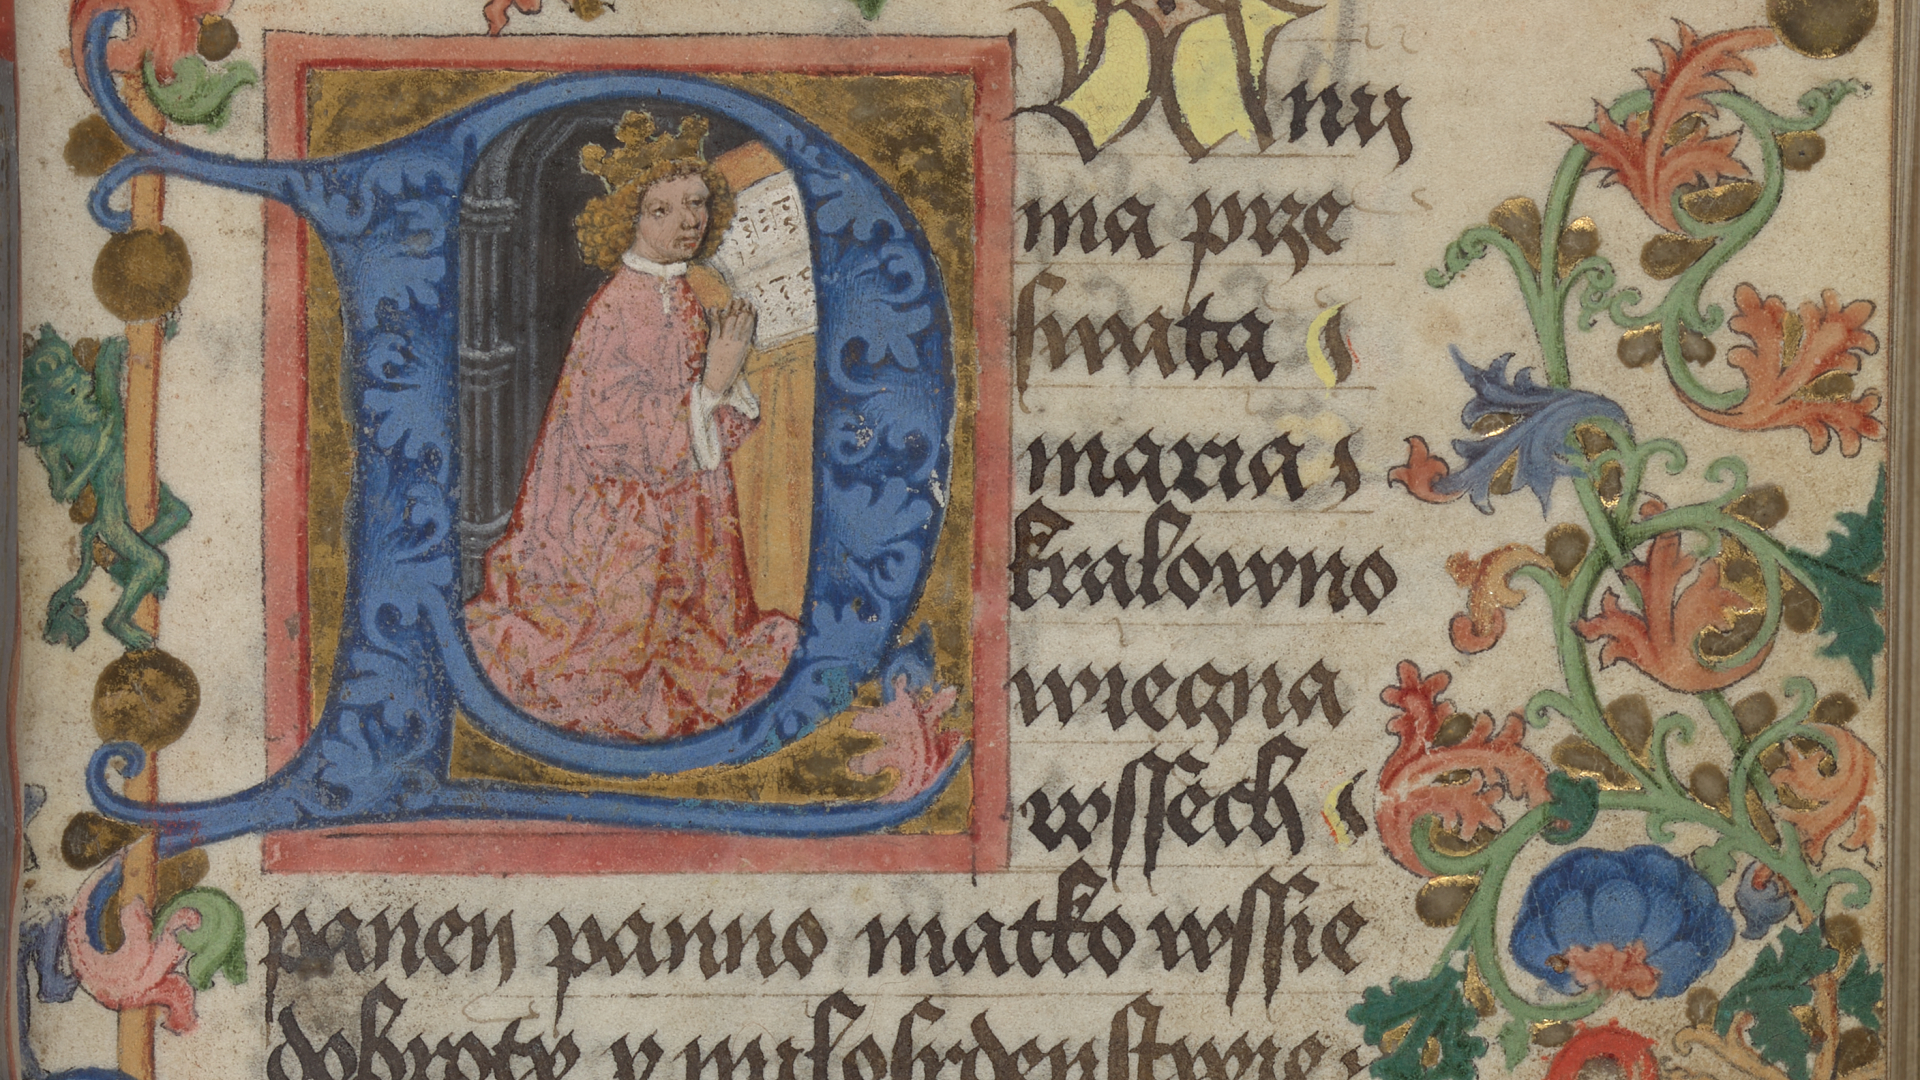 PAny
ma prze
swata
maria
kralowno
wieczna
wssech
panen panno matko wssie
dobroty y milosrdenstwie